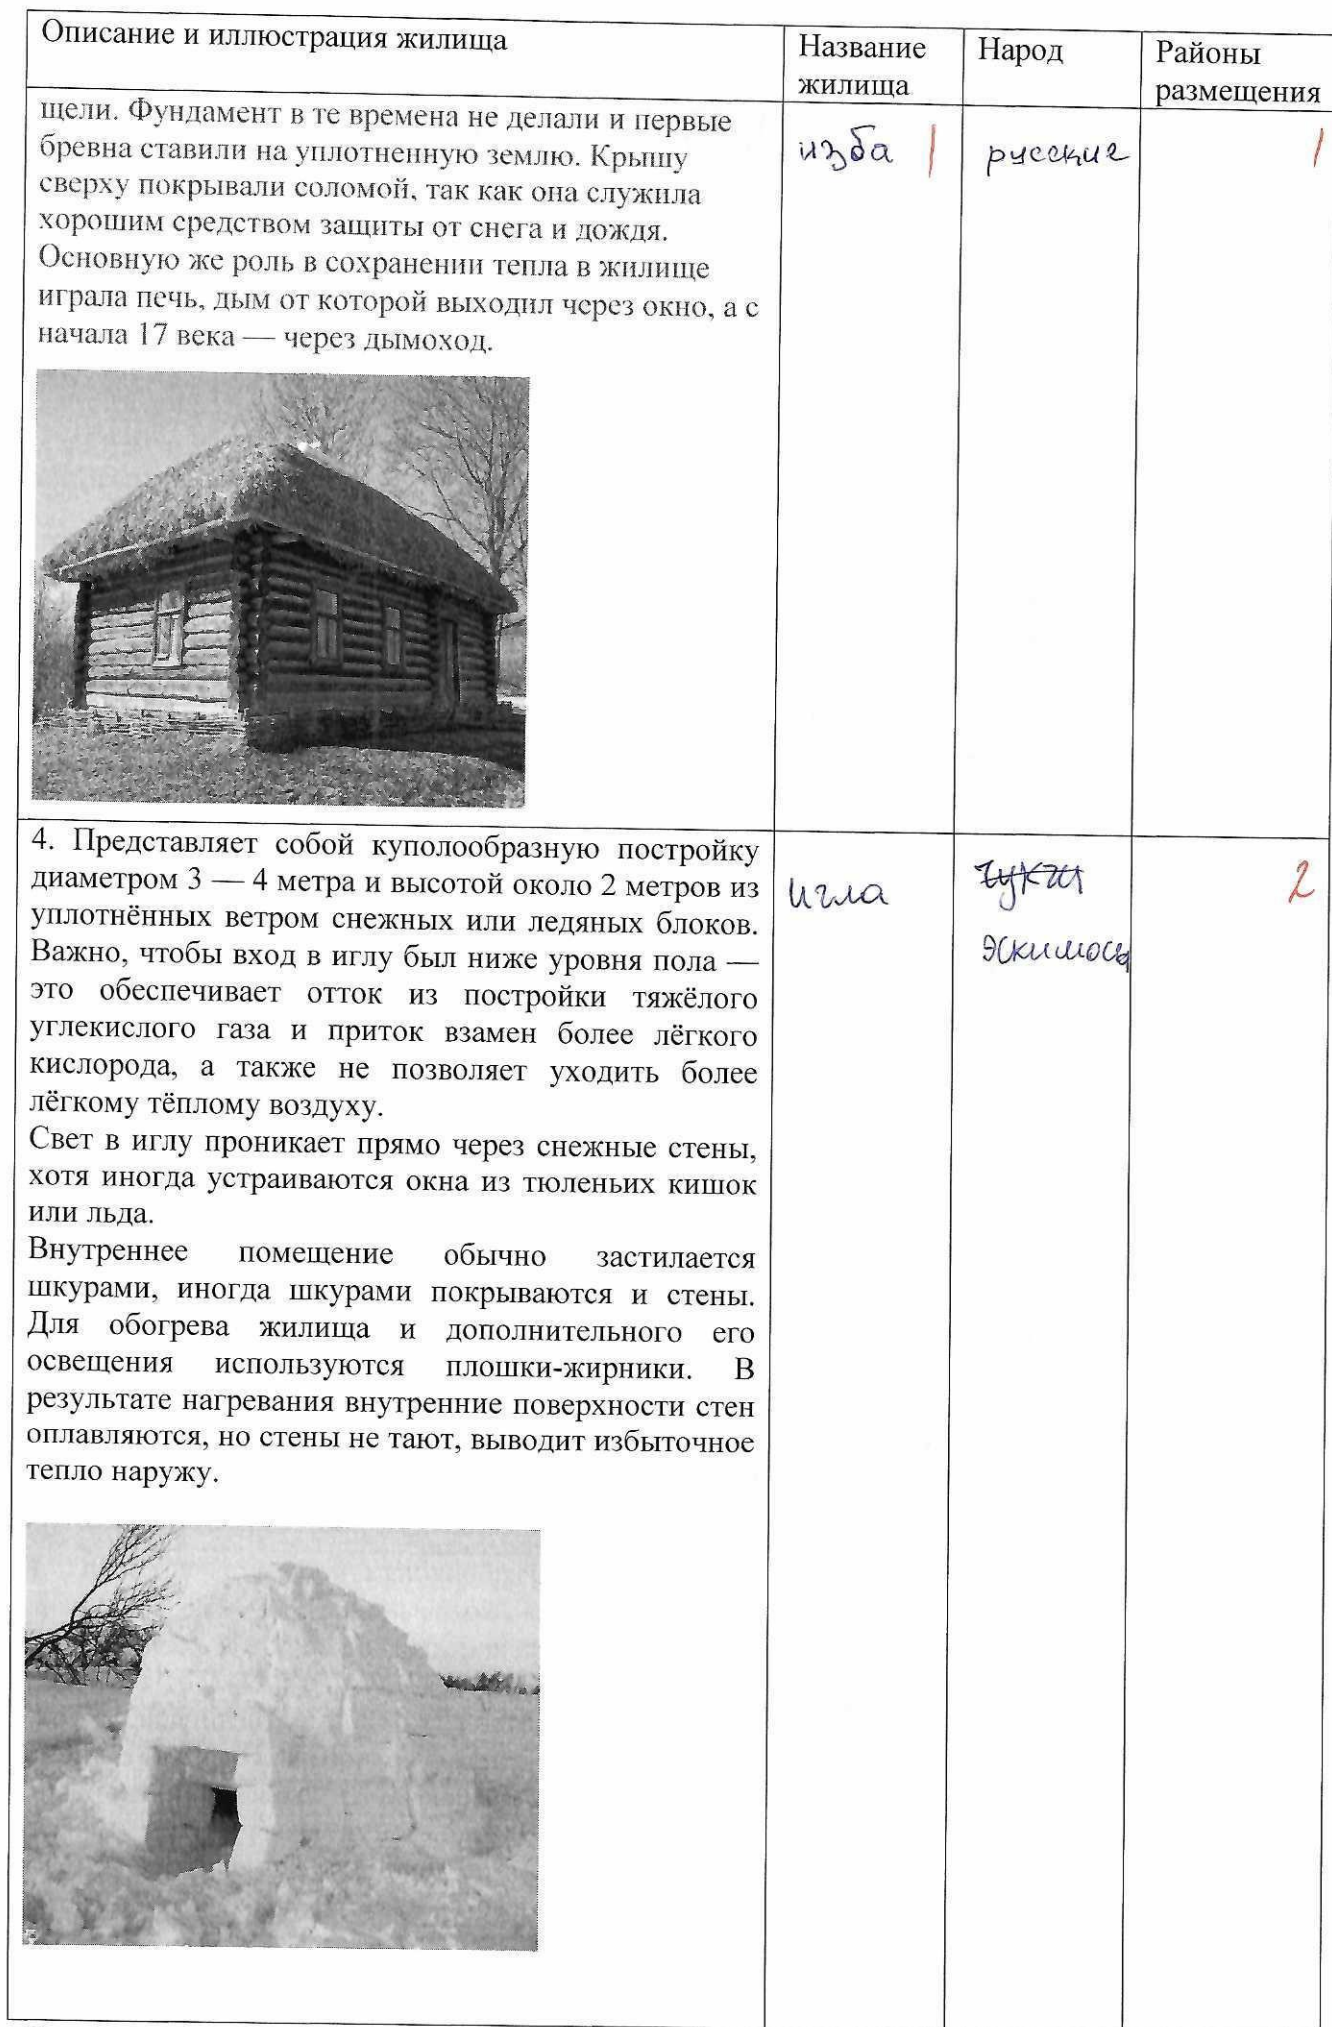 Описание и иллюстрация жилища
Название жилища
Народ
Районы размещения
щели. Фундамент в те времена не делали и первые
бревна ставили на уплотненную землю. Крышу
сверху покрывали соломой, так как она служила
хорошим средством защиты от снега и дождя.
Основную же роль в сохранении тепла в жилище
играла печь, дым от которой выходил через окно, а с
начала 17 века — через дымоход.
изба |
русские
1
4. Представляет собой куполообразную постройку
диаметром 3 — 4 метра и высотой около 2 метров из
уплотнённых ветром снежных или ледяных блоков.
Важно, чтобы вход в иглу был ниже уровня пола —
это обеспечивает отток из постройки тяжёлого
углекислого газа и приток взамен более лёгкого
кислорода, а также не позволяет уходить более
лёгкому тёплому воздуху.
Свет в иглу проникает прямо через снежные стены,
хотя иногда устраиваются окна из тюленьих кишок
или льда.
Внутреннее помещение обычно застилается
шкурами, иногда шкурами покрываются и стены.
Для обогрева жилища и дополнительного его
освещения используются плошки-жирники. В
результате нагревания внутренние поверхности стен
оплавляются, но стены не тают, выводит избыточное
тепло наружу.
игла
чукчи
эскимосы
2